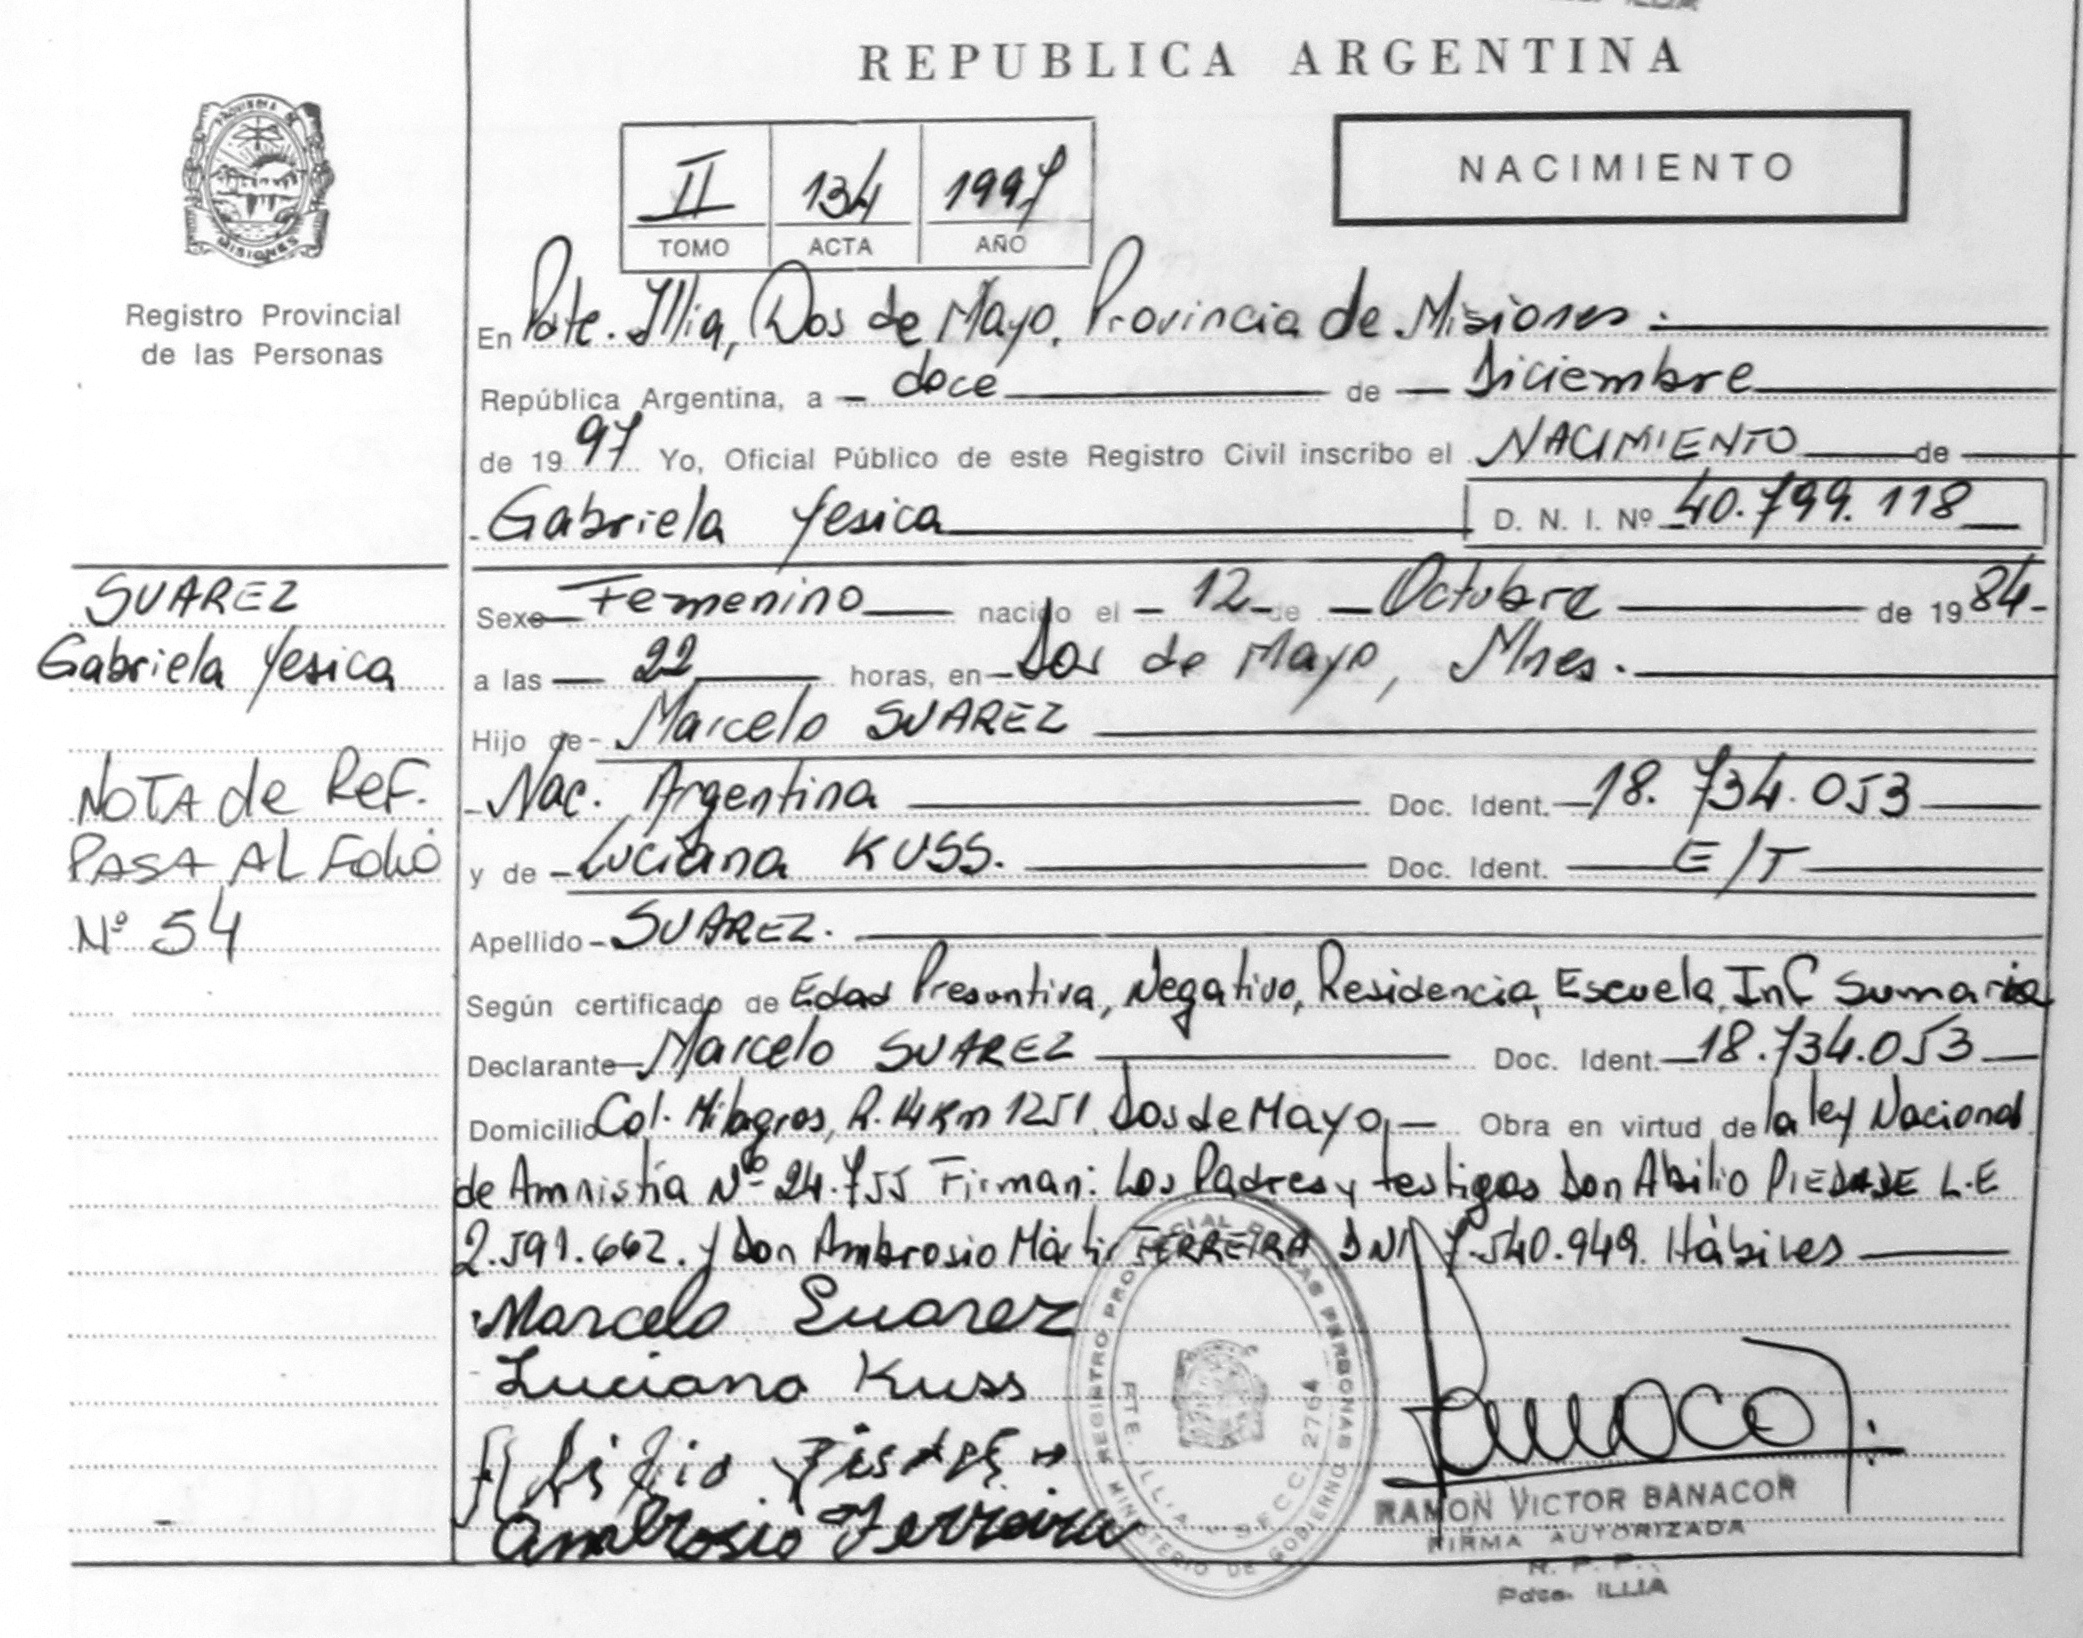 REPUBLICA ARGENTINA
PROVINCIA DE
MISIONES
Registro Provincial
de las Personas
II 134 1997
TOMO ACTA AÑO
NACIMIENTO
En Pdte. Illia, Dos de Mayo, Provincia de Misiones.
República Argentina, a doce de Diciembre
de 1997 Yo, Oficial Público de este Registro Civil inscribo el NACIMIENTO de
Gabriela Yesica D. N. I. Nº 40.799.118
SUAREZ
Gabriela Yesica
NOTA de Ref.
PASA AL Folio
Nº 54
Sexo Femenino nacido el 12 de Octubre de 1984
a las 22 horas, en Dos de Mayo, Mnes.
Hijo de Marcelo SUAREZ
Nac. Argentina Doc. Ident. 18.734.053
y de Luciana KUSS. Doc. Ident. E/T
Apellido SUAREZ.
Según certificado de Edad Presuntiva, Negativo, Residencia, Escuela, Inf Sumaria
Declarante Marcelo SUAREZ Doc. Ident. 18.734.053
Domicilio Col. Milagros, R. 14 Km 1251 Dos de Mayo, Obra en virtud de la ley Nacional
de Amnistía Nº 24.755 Firman: Los Padres y testigos Don Abilio PIEDADE L.E
2.591.662. y Don Ambrosio Martir FERREIRA DNI 7.540.949. Hábiles
Marcelo Suarez
Luciana Kuss
Ambrosio Ferreira
REGISTRO PROVINCIAL DE LAS PERSONAS
PTE. ILLIA SECC. 2764
MINISTERIO DE GOBIERNO
RAMON VICTOR BANACOR
FIRMA AUTORIZADA
R. P. P.
Pdte. ILLIA